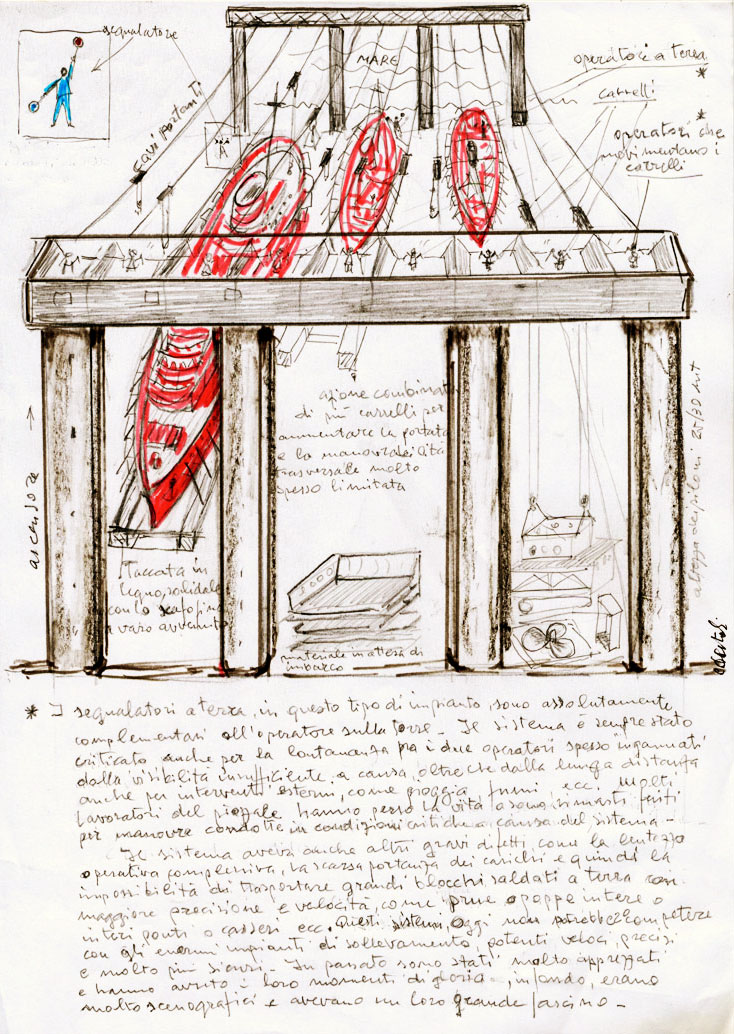 segnalatore
MARE
operatori a terra
*
carrelli
cavi portanti
A
* operatori che
movimentano i
carrelli
azione combinata
di più carrelli per
aumentare la portata
e la manovrabilità
trasversale molto
spesso limitata
ascensore →
altezza dei piloni 25/30 mt
Taccata in
legno, solidale
con lo scafo fino
a varo avvenuto
materiale in attesa di
imbarco
* I segnalatori a terra, in questo tipo di impianto, sono assolutamente
complementari all'operatore sulla torre - Il sistema è sempre stato
criticato anche per la lontananza fra i due operatori spesso "ingannati"
dalla visibilità insufficiente, a causa, oltre che dalla lunga distanza
anche per interventi esterni, come pioggia, fumi, ecc. Molti
lavoratori del piazzale hanno perso la vita o sono rimasti feriti
per manovre condotte in condizioni critiche a causa del sistema -
Il sistema aveva anche altri gravi difetti, come la lentezza
operativa complessiva, la scarsa portanza dei carichi e quindi la
impossibilità di trasportare grandi blocchi saldati a terra con
maggiore precisione e velocità, come prue o poppe intere o
interi ponti o casseri ecc. Questi sistemi, oggi non potrebbero competere
con gli enormi impianti di sollevamento, potenti veloci, precisi
e molto più sicuri - In passato sono stati molto apprezzati
e hanno avuto i loro momenti di gloria -, in fondo, erano
molto scenografici e avevano un loro grande fascino -